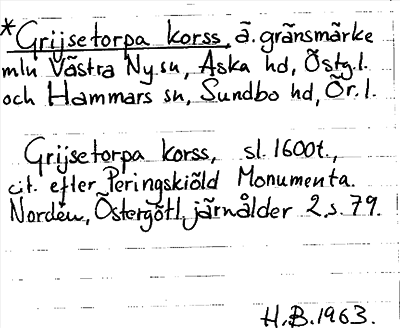 *Grijsetorpa korss, ä. gränsmärke
mln Västra Ny sn, Aska hd, Östg.l.
och Hammars sn, Sundbo hd, Ör.l.
Grijsetorpa korss, sl. 1600t.,
cit. efter Peringskiöld Monumenta.
Nordén, Östergötl. järnålder 2, s. 79.
H.B. 1963.